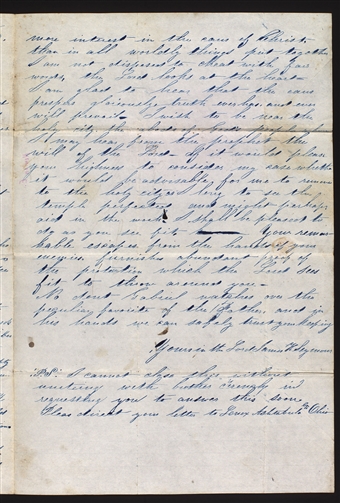 more interest in the cause of Christ
than in all worldly things put together
I am not disposed to cheat with fair
words, the Lord looks at the heart
I am glad to hear that the cause
prospers gloriously truth ever has and ever
will prevail I wish to be near the
holy city the abode of Gods prophet
I may hear from the prophet the
will of the Lord If it would please
your highness to consider my case whether
it would be advisable for me to remove
to the holy city I long to see the
temple perfected and might perhaps
aid in the work I shall be pleased to
do as you see fit Your remar
kable escapes from the hands of your
enemies furnishes abundant proof of
the protection which the Lord sees
fit to throw around you
No doubt Gabriel watches over the
peculiar favorite of the Father and in
his hands we can safely trust your keeping
Yours in the Lord James H. Seymour
P.S. I cannot close this without
uniting with brother in
requesting you to answer this soon
Please direct your letter to Lenox Ashtabula Co Ohio